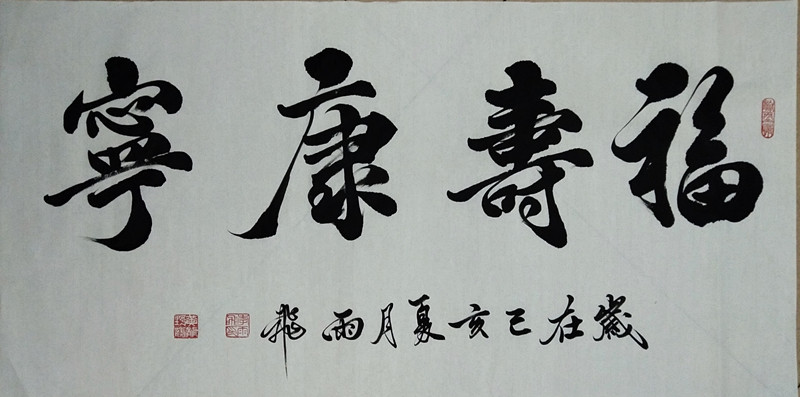 福壽康寧
歲在己亥夏月雨飛